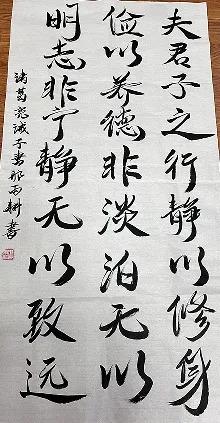 夫君子之行静以修身
俭以养德非淡泊无以
明志非宁静无以致远
诸葛亮诫子书 邢雨耕书